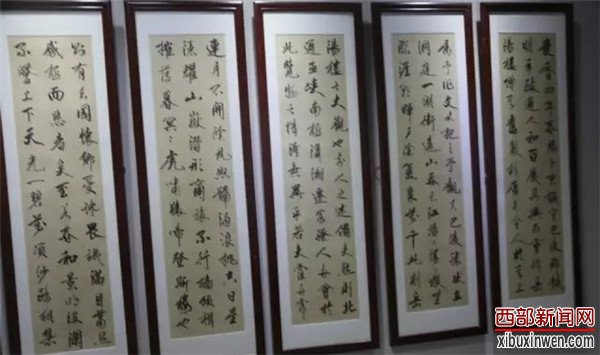 慶曆四年春滕子京謫守巴陵郡越
明年政通人和百廢具興乃重修岳
陽樓增其舊制刻唐賢今人於其上
屬予作文以記之予觀夫巴陵勝狀在
洞庭一湖銜遠山吞長江浩浩湯湯橫無
際涯朝暉夕陰氣象萬千此則岳
陽樓之大觀也前人之述備矣然則北
通巫峽南極瀟湘遷客騷人多會於
此覽物之情得無異乎若夫霪雨霏
連月不開陰風怒號濁浪排空日星
隱耀山嶽潛形商旅不行檣傾楫
摧薄暮冥冥虎嘯猿啼登斯樓也
則有去國懷鄉憂讒畏譏滿目蕭然
感極而悲者矣至若春和景明波瀾
不驚上下天光一碧萬頃沙鷗翔集
西部新闻网
xibuxinwen.com